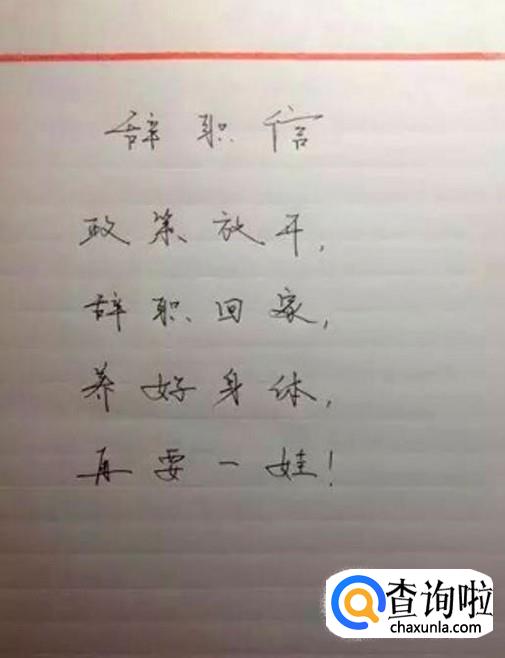 辞职信
政策放开,
辞职回家,
养好身体,
再要一娃!
查询啦
chaxunla.com